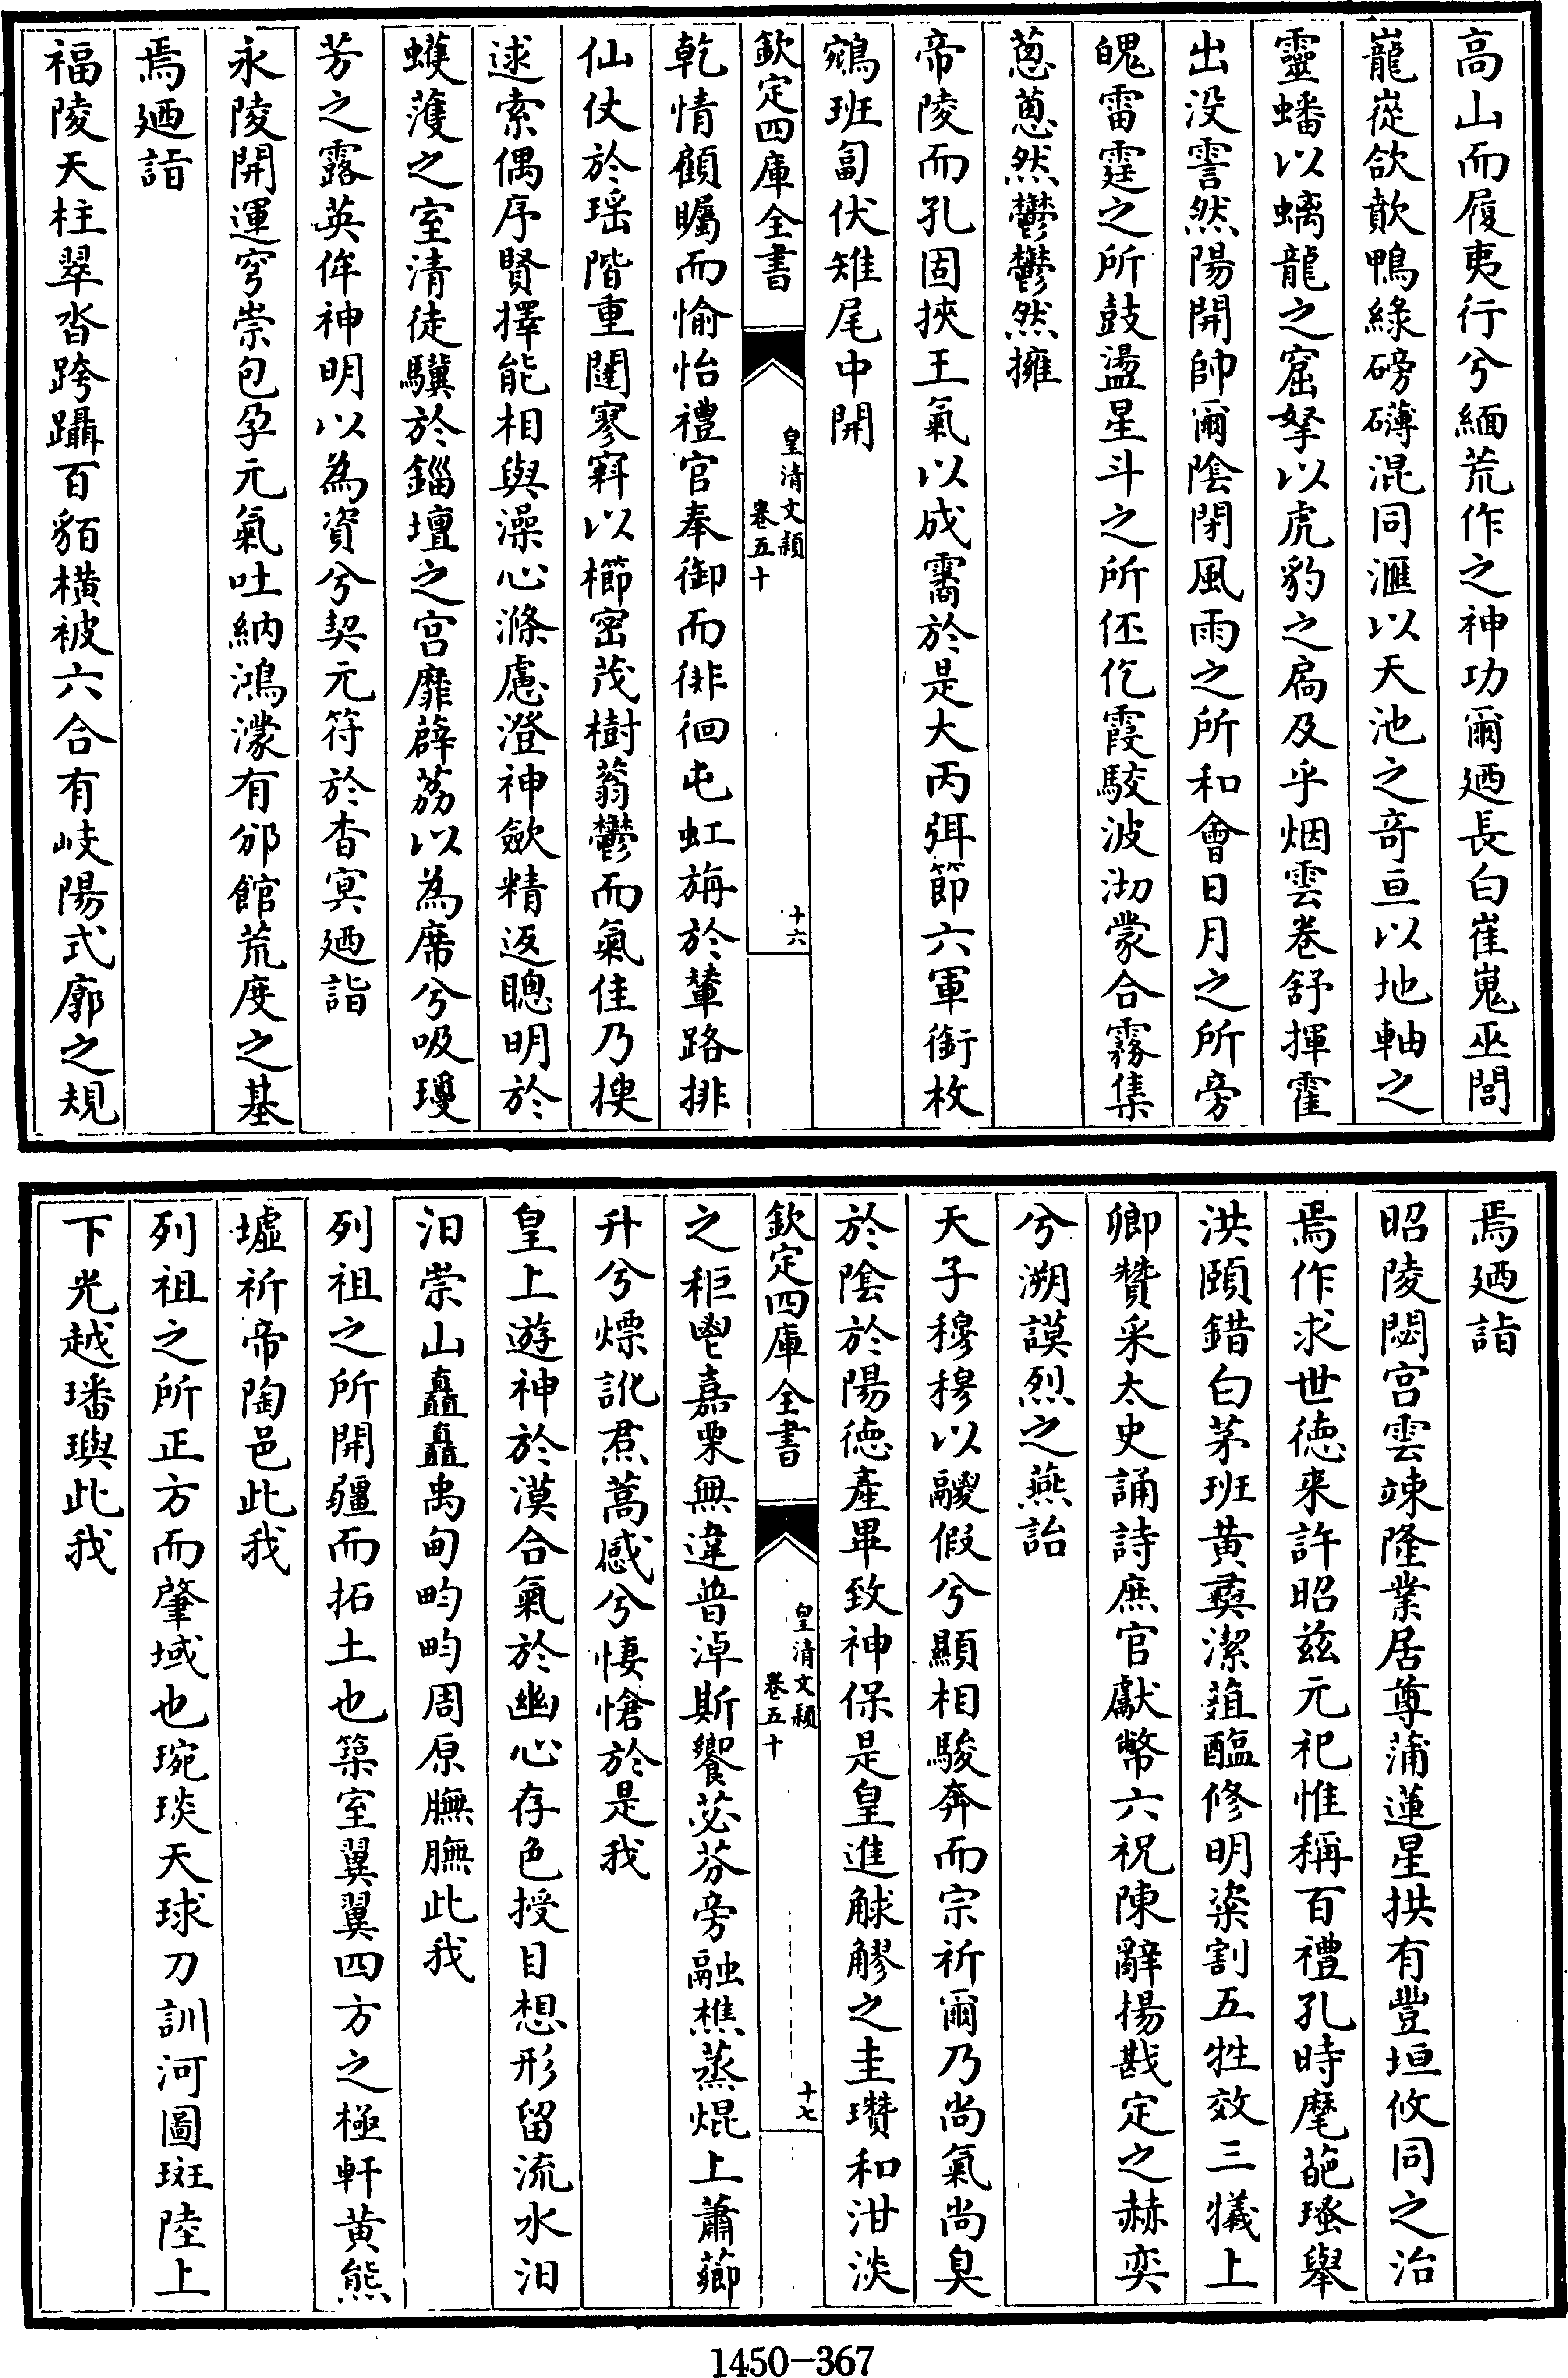 高山而履夷行兮緬荒作之神功爾廼長白崔嵬巫閭
巃嵸欱歕鴨綠磅礴混同滙以天池之竒亘以地軸之
靈蟠以螭龍之窟拏以虎豹之扃及乎烟雲卷舒揮霍
出没霅然陽開帥爾陰閉風雨之所和會日月之所旁
魄雷霆之所鼓盪星斗之所伾仡霞駮波沏蒙合霧集
蔥蔥然鬱鬱然擁
帝陵而孔固挾王氣以成靄於是大丙弭節六軍銜枚
鵷班匐伏雉尾中開
欽定四庫全書
皇清文穎
卷五十
十六
乾情顧矚而愉怡禮官奉御而徘徊屯虹旃於輦路排
仙仗於瑶階重闥寥窲以櫛密茂樹蓊鬱而氣佳乃㨕
逑索偶序賢擇能相與澡心滌慮澄神歛精返聰明於
蠖濩之室清徒驥於錙壇之宫靡薜荔以為席兮吸瓊
芳之露英侔神明以為資兮契元符於杳冥廼詣
永陵開運穹崇包孕元氣吐納鴻濛有邠館荒度之基
焉廼詣
福陵天柱翠沓跨躡百貊橫被六合有岐陽式廓之規
焉廼詣
昭陵閟宫雲竦隆業居尊蒲蓮星拱有豐垣攸同之治
焉作求世徳来許昭兹元祀惟稱百禮孔時麾葩瑵舉
洪頤錯白茅班黄彞潔葅醢修明粢割五牲效三犧上
卿贊采太史誦詩庶官獻幣六祝陳辭揚戡定之赫奕
兮溯謨烈之燕詒
天子穆穆以鬷假兮顯相駿奔而宗祈爾乃尚氣尚臭
於陰於陽徳産畢致神保是皇進觩觺之圭瓚和泔淡
欽定四庫全書
皇清文穎
卷五十
十七
之秬鬯嘉栗無違普淖斯饗苾芬旁融樵蒸焜上蕭薌
升兮熛訛焄蒿感兮悽愴於是我
皇上遊神於漠合氣於幽心存色授目想形留流水汩
汩崇山矗矗禹甸畇畇周原膴膴此我
列祖之所開疆而拓土也築室翼翼四方之極軒黄熊
墟祈帝陶邑此我
列祖之所正方而肇域也琬琰天球刀訓河圖斑陸上
下光越璠璵此我
1450-367